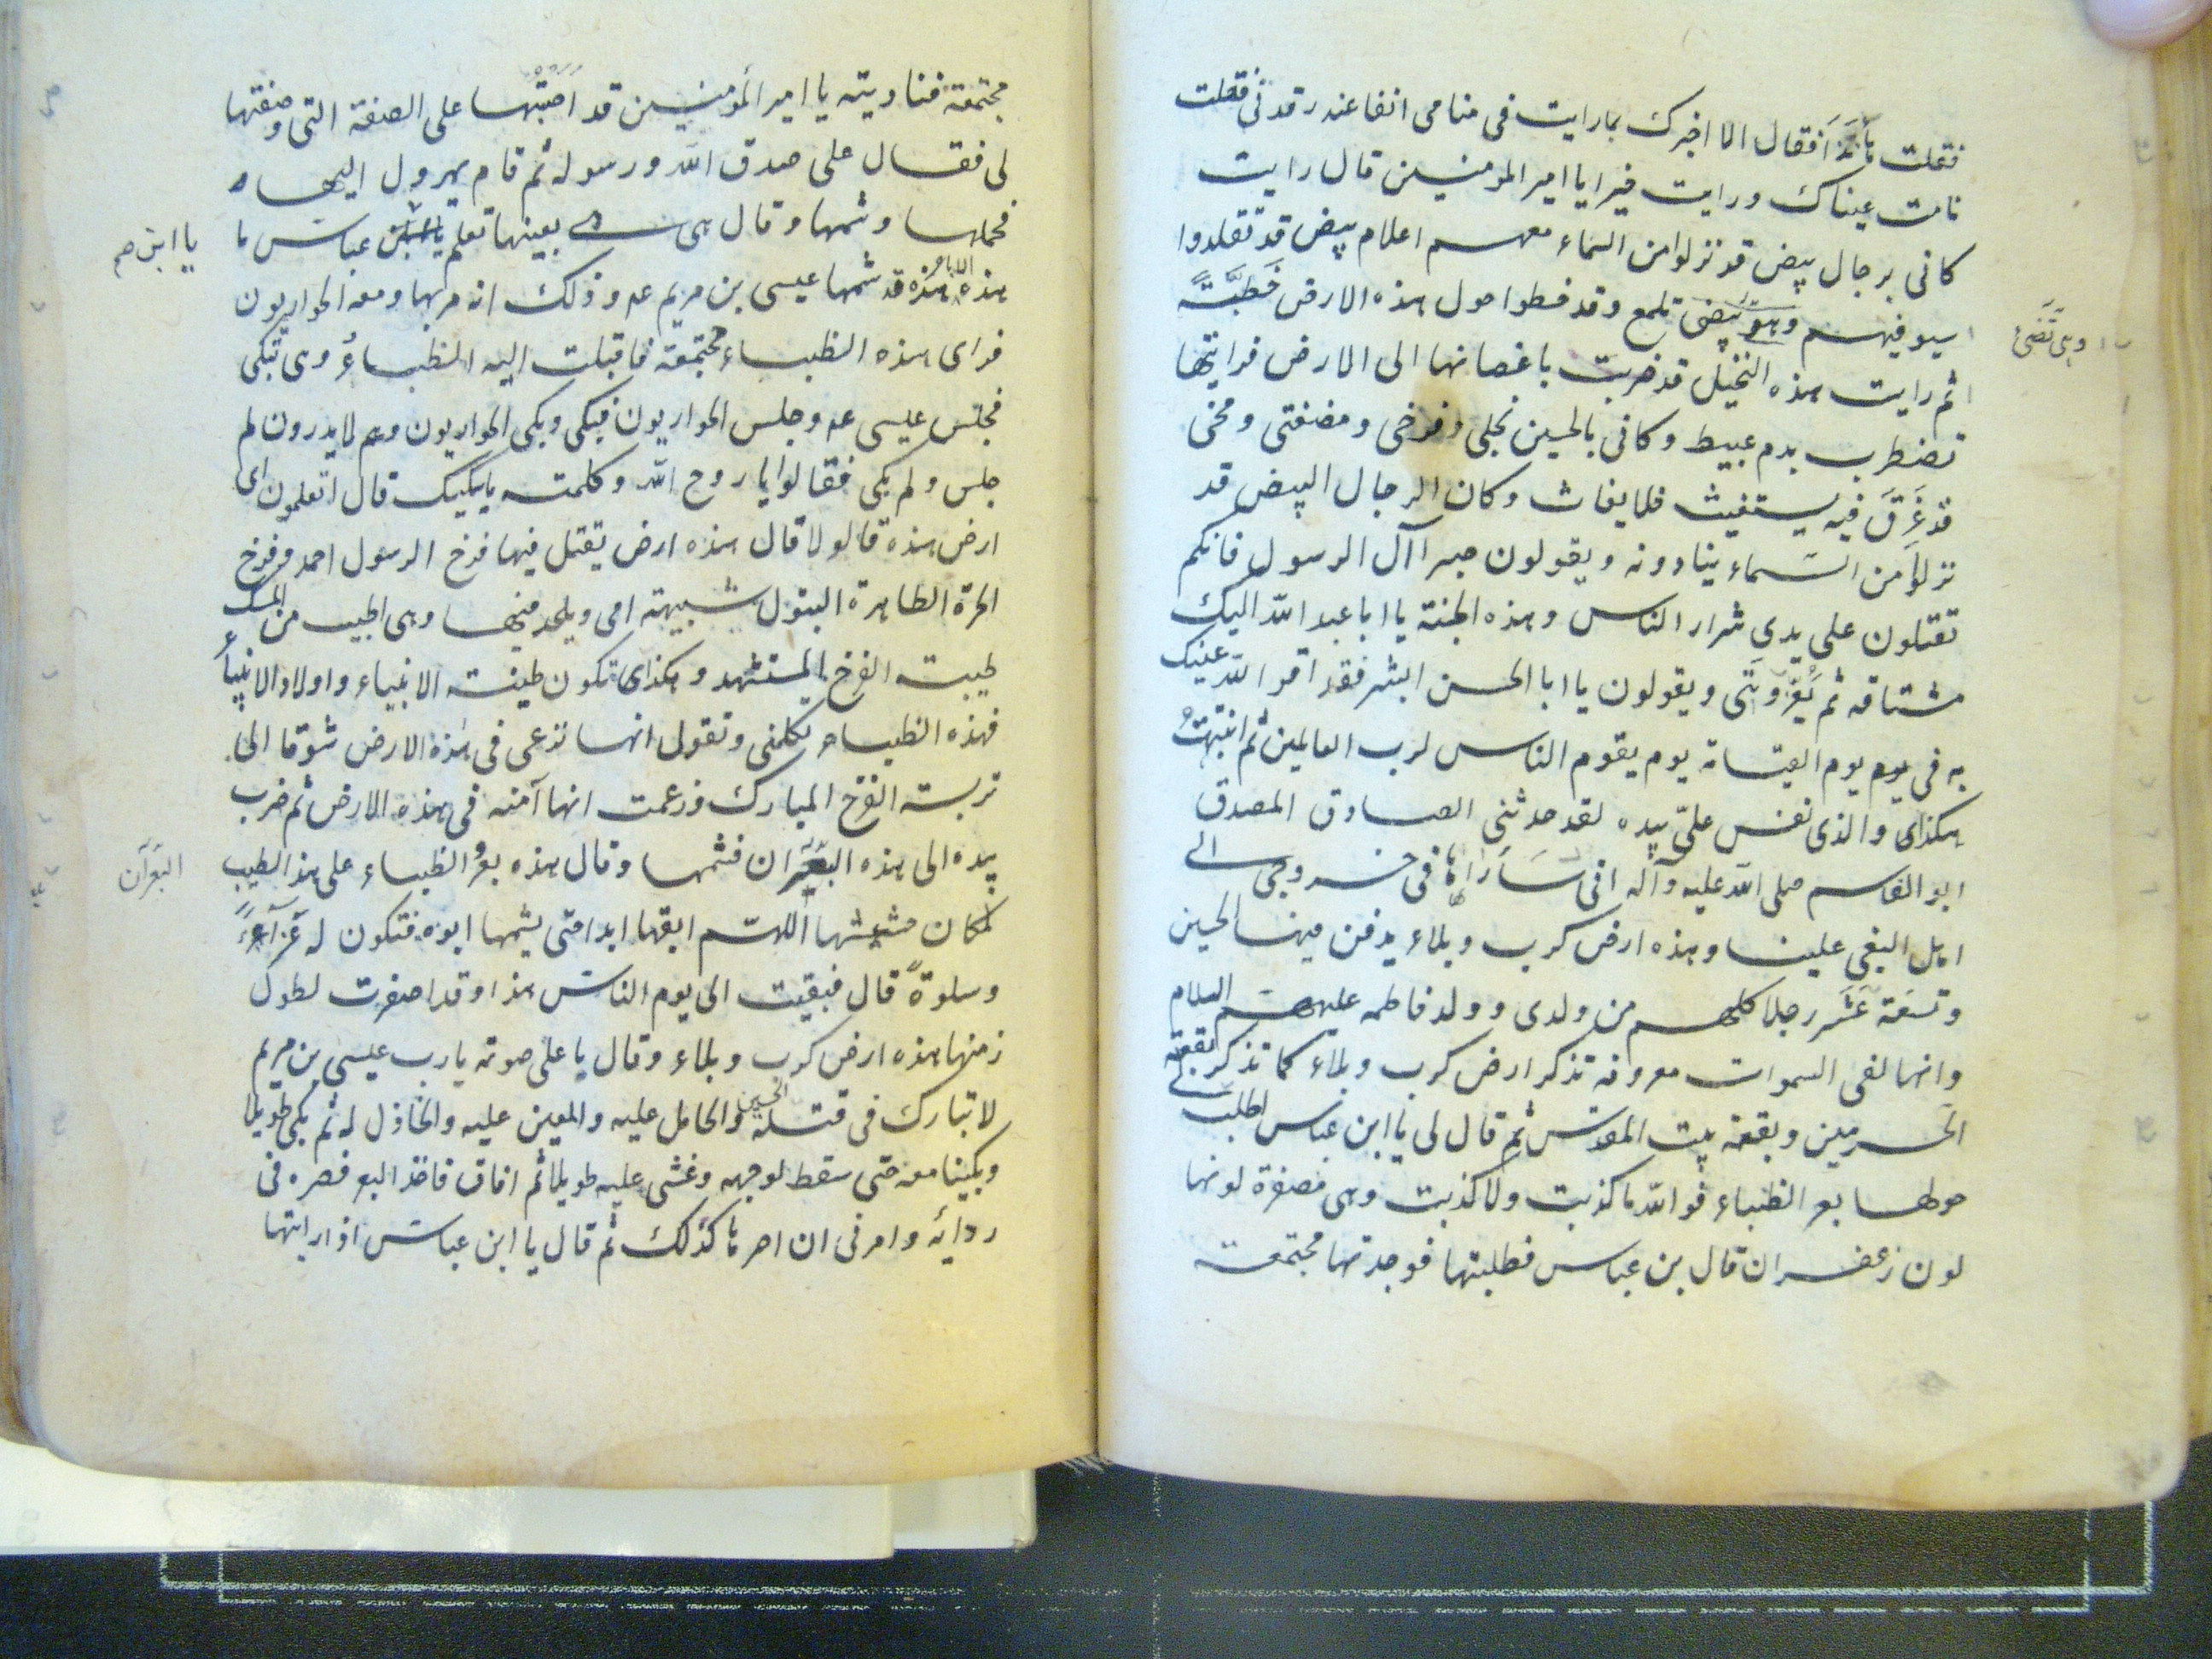 فقلت ها انا ذا فقال الا اخبرك بما رايت فى منامى انفا عند رقدتى فقلت
نامت عيناك ورايت خيرا يا امير المومنين قال رايت
كانى برجال بيض قد نزلوا من السماء معهم اعلام بيض قد تقلدوا
سيوفهم وهو بيض تلمع وقد خطوا حول هذه الارض خَطَّةً
وهى تضئ
ثم رايت هذه النخيل قد ضربت باغصانها الى الارض فرايتها
تضطرب بدم عبيط وكانى بالحسين نجلى وفرخى ومضغتى ومخى
قد غَرَقَ فيه يستغيث فلا يغاث وكان الرجال البيض قد
نزلوا من السماء ينادونه ويقولون صبرا آل الرسول فانكم
تقتلون على يدى شرار الناس وهذه الجنة يا ابا عبد الله اليك
مشتاقه ثم يُعَزّونَنى ويقولون يا ابا الحسن ابشر فقد اقر الله عينك
به فى يوم يوم القيامة يوم يقوم الناس لرب العالمين ثم انتبهتُ
هكذا والذى نفس علىّ بيده لقد حدثنى الصادق المصدق
ابو القاسم صلى الله عليه وآله انى سَاَراها فى خروجى الى
اهل البغى علينا وهذه ارض كرب وبلاء يدفن فيها الحسين
وتسعَة عَشَر رجلا كلهم من ولدى وولد فاطمه عليهم السلام
وانها لفى السموات معروفة تذكر ارض كرب وبلاء كما تذكر بقعة
الحرمين وبقعة بيت المقدس ثم قال لى يا ابن عباس اطلب لى
حولها بعر الظباء فو الله ما كذبت ولا كذبت وهى مصفرة لونها
لون زعفران قال بن عباس فطلبتها فوجدتها مجتمعة
مجتمعة فناديته يا امير المؤمنين قد اَصَبْتُها على الصفة التى وصفتها
لى فقال على صدق الله ورسوله ثم قام يهرول اليها
فحملها وشمها وقال هى هى بعينها تعلم يا ابن عباس ما
يا ابن صم
هذه الابعار هذه قد شمها عيسى بن مريم عم وذلك انه مر بها ومعه الحواريون
فراى هذه الظباء مجتمعة فاقبلت اليه الظباءُ وهى تبكى
فجلس عيسى عم وجلس الحواريون فبكى وبكى الحواريون وهم لا يدرون لم
جلس ولم بكى فقالوا يا روح الله وكلمته ما يبكيك قال اتعلمون اى
ارض هذه قالو لا قال هذه ارض يقتل فيها فرخ الرسول احمد وفرخ
الحرة الطاهرة البتول شبيهة امى ويلحد فيها وهى اطيب من المسك
طيبت الفرخ المستشهد وهكذى تكون طينت الانبياء واولاد الانبياء
فهذه الظباء تكلمنى وتقول انها ترعى فى هذه الارض شوقا الى
تربت الفرخ المبارك فزعمت انها آمنه فى هذه الارض ثم ضرب
بيده الى هذه البعران فشمها وقال هذه بعر الظباء على هذ الطيب
البَعْرَان
لمكان حشيشها اللهم ابقها ابدا حتى يشمها ابوه فتكون له عزآءً
وسلوةً قال فبقيت الى يوم الناس هذا وقد اصفرت لطول
زمنها هذه ارض كرب وبلاء وقال با على صوته يا رب عيسى بن مريم
لا تبارك فى قتلة الحسين والحامل عليه والمعين عليه والخاذل له ثم بكى طويلا
وبكينا معه حتى سقط لوجهه وغشى عليه طويلا ثم افاق فاخذ البعر فصره فى
ردائه وامرنى ان اصرها كذلك ثم قال يا ابن عباس اذا رايتها